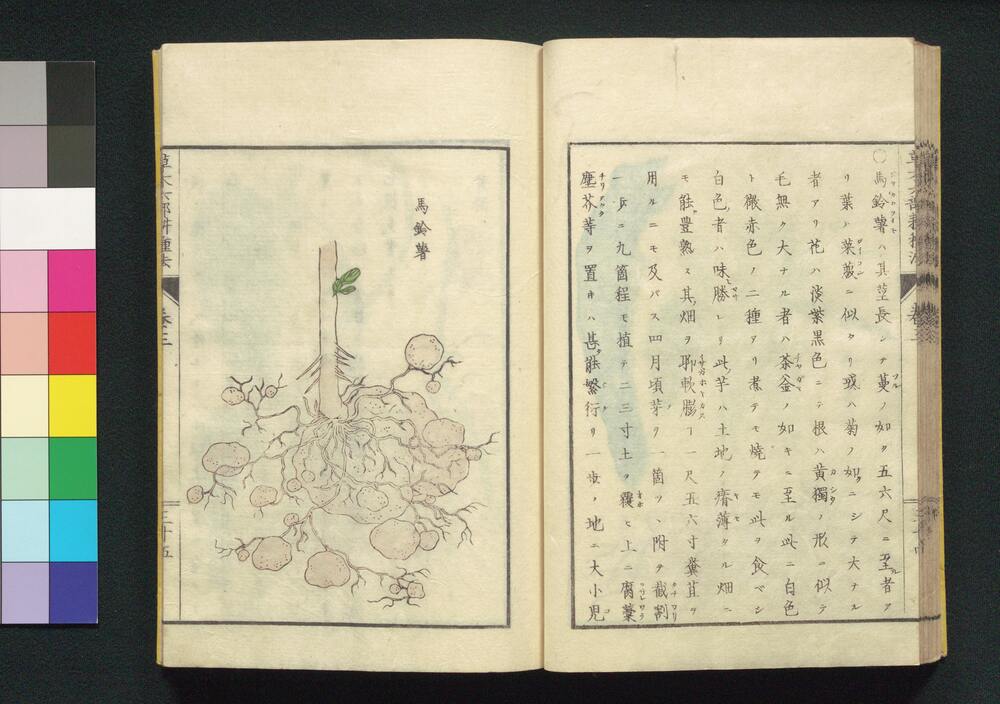 〇馬鈴薯ハ其莖長シテ蔓ノ如ク五六尺ニ至者ア
リ葉ハ菜菔ニ似タリ或ハ菊ノ如クニシテ大ナル
者アリ花ハ淡紫黒色ニテ根ハ黄獨ノ形ニ似テ
毛無ク大ナル者ハ茶釜ノ如キニ至ル此ニ白色
ト微赤色ノ二種アリ煮テモ燒テモ此ヲ食ベシ
白色者ハ味勝レリ此芋ハ土地ノ瘠薄タル畑ニ
モ能豊熟ス其畑ヲ耶軟膨一尺五六寸糞苴ヲ
用ルニモ及バス四月頃芽ヲ一箇ツヽ附テ截割
一歩ニ九箇程モ植テ二三寸土ヲ覆ヒ上ニ腐藁
塵芥等ヲ置キハ甚能繁衍リ一歩ノ地ニ大小児
馬鈴薯
草木六部耕種法
巻三
三十五